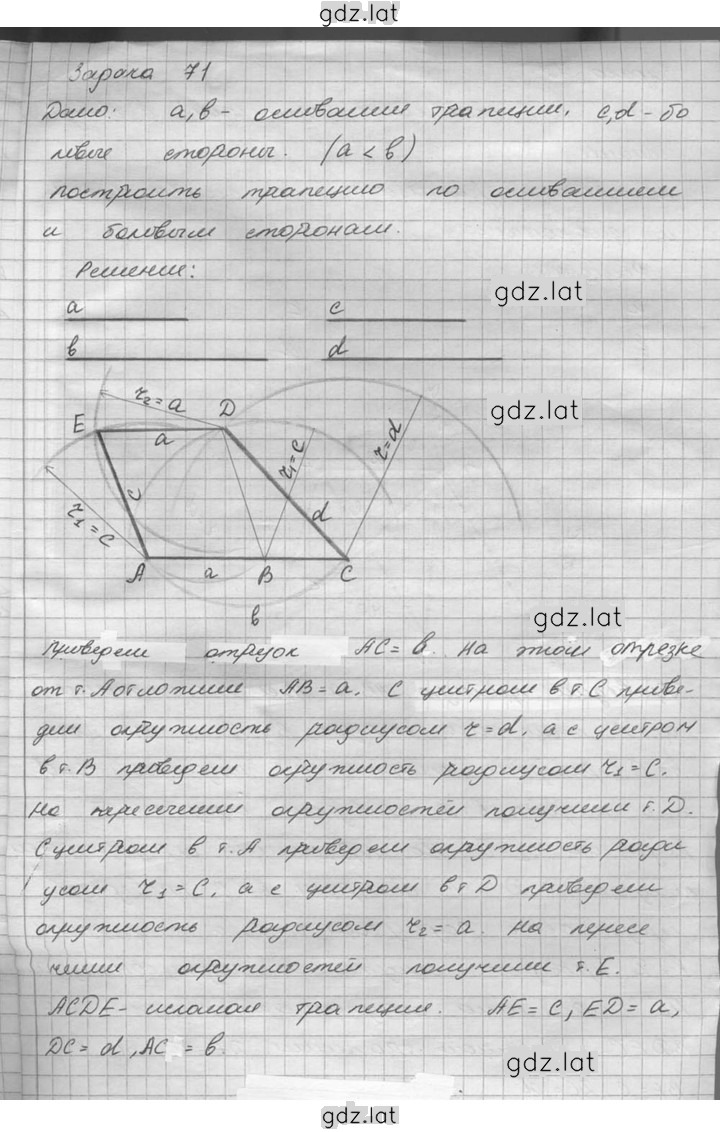 gdz.lat
Задача 71
Дано: a, b - основания трапеции, c, d - бо
ковые стороны. (a < b)
построить трапецию по основаниям
и боковым сторонам.
Решение:
gdz.lat
a
c
b
d
gdz.lat
r₂ = a
D
E
a
r₁ = c
r = d
c
r₁ = c
d
A
a
B
C
b
gdz.lat
проведем отрезок AC = b. на этом отрезке
от т. A отложим AB = a. С центром в т. C прове-
дем окружность радиусом r = d, а с центром
в т. B проведем окружность радиусом r₁ = c.
На пересечении окружностей получим т. D.
С центром в т. A проведем окружность ради
усом r₁ = c, а с центром в т D проведем
окружность радиусом r₂ = a. на пересе
чении окружностей получим т. E.
ACDE - искомая трапеция. AE = c, ED = a,
DC = d, AC = b.
gdz.lat
gdz.lat